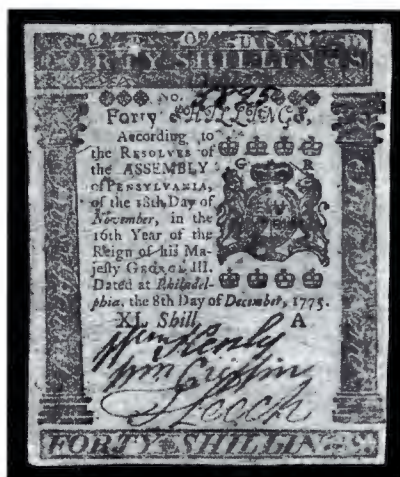 FORTY SHILLINGS
No. 2825
Forty SHILLINGS,
According to
the RESOLVES of
the ASSEMBLY
of PENSYLVANIA,
of the 18th Day of
November, in the
16th Year of the
Reign of his Ma-
jesty GEORGE III.
Dated at Philadel-
phia, the 8th Day of December, 1775.
G R
XL Shill. A
Kenly
Wm Griffin
Leech
FORTY SHILLINGS.